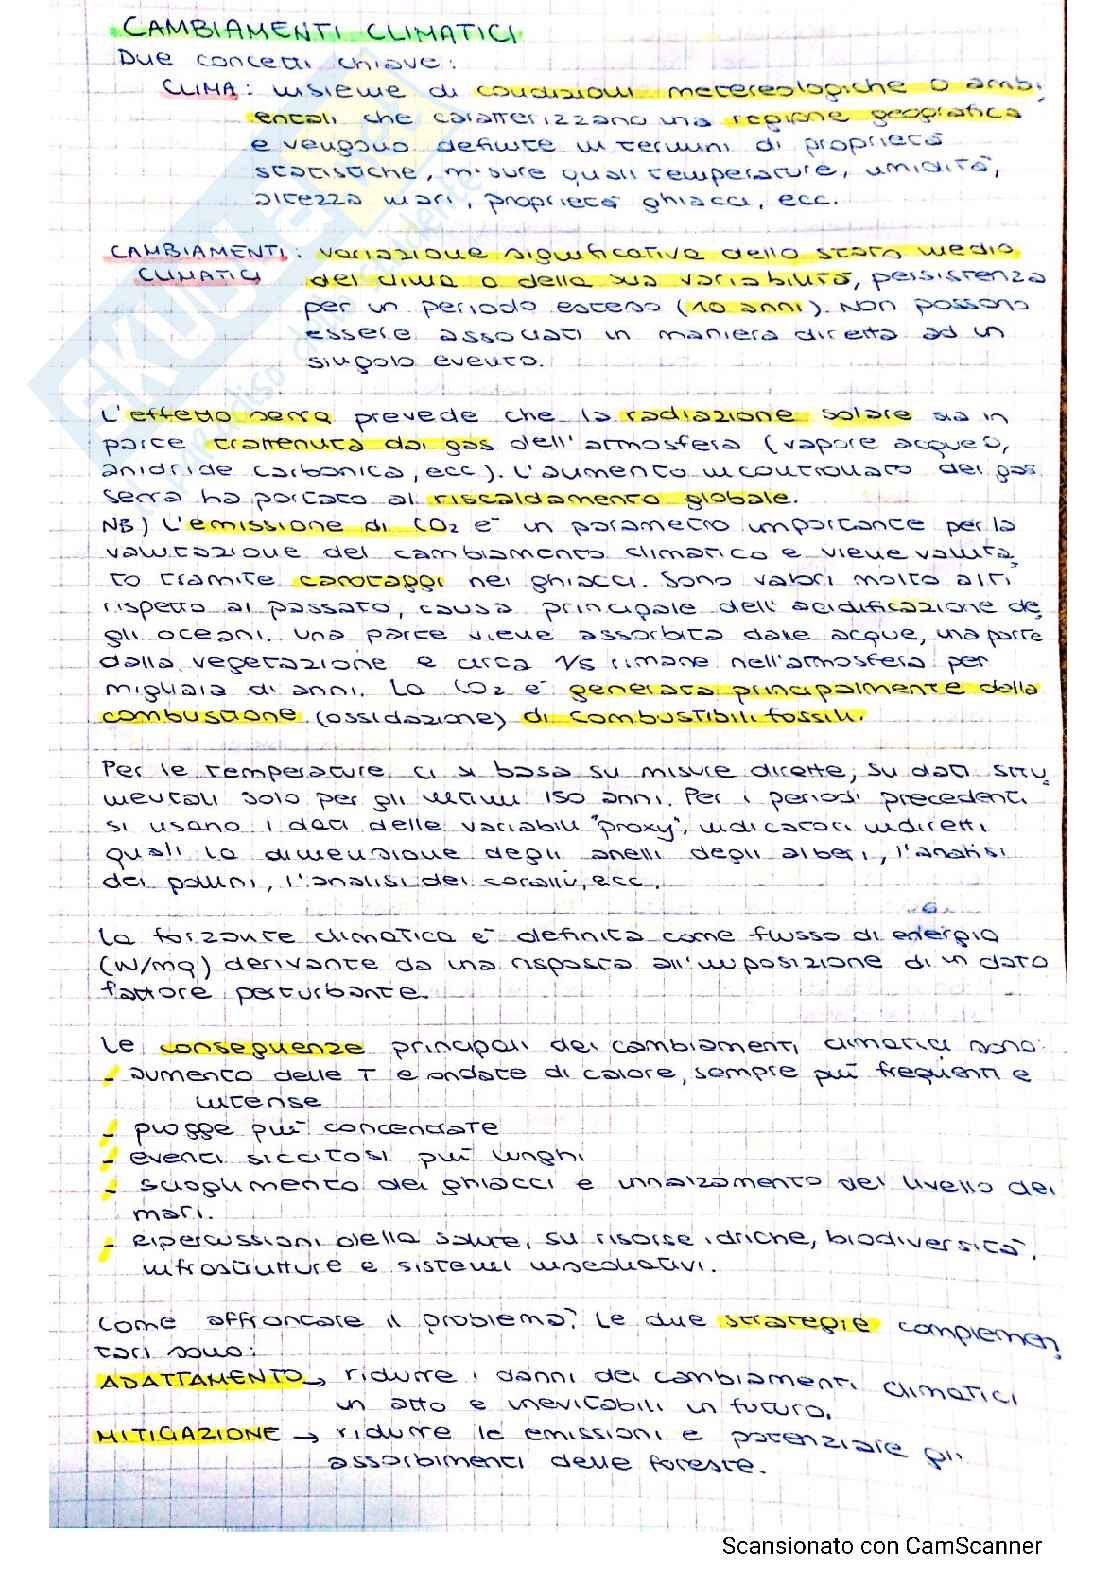 CAMBIAMENTI CLIMATICI
Due concetti chiave:
CLIMA: insieme di condizioni metereologiche o ambi
entali che caratterizzano una regione geografica
e vengono definite in termini di proprietà
statistiche, misure quali temperature, umidità,
altezza mari, proprietà ghiacci, ecc.
CAMBIAMENTI: variazione significativa dello stato medio
CLIMATICI del clima o della sua variabilità, persistenza
per un periodo esteso (10 anni). Non possono
essere associati in maniera diretta ad un
singolo evento.
L'effetto serra prevede che la radiazione solare sia in
parte trattenuta dai gas dell'atmosfera (vapore acqueo,
anidride carbonica, ecc). L'aumento incontrollato dei gas
serra ha portato al riscaldamento globale.
NB) L'emissione di CO2 è un parametro importante per la
valutazione del cambiamento climatico e viene valuta
to tramite carotaggi nei ghiacci. Sono valori molto alti
rispetto al passato, causa principale dell'acidificazione de
gli oceani. Una parte viene assorbita dalle acque, una parte
dalla vegetazione e circa 1/5 rimane nell'atmosfera per
migliaia di anni. La CO2 è generata principalmente dalla
combustione (ossidazione) di combustibili fossili.
Per le temperature ci si basa su misure dirette, su dati stru
mentali solo per gli ultimi 150 anni. Per i periodi precedenti
si usano i dati delle variabili "proxy", indicatori indiretti
quali la dimensione degli anelli degli alberi, l'analisi
dei pollini, l'analisi dei coralli, ecc.
La forzante climatica è definita come flusso di energia
(W/mq) derivante da una risposta all'imposizione di un dato
fattore perturbante.
Le conseguenze principali dei cambiamenti climatici sono:
- aumento delle T e ondate di calore, sempre più frequenti e
intense
- piogge più concentrate
- eventi siccitosi più lunghi
- scioglimento dei ghiacci e innalzamento del livello dei
mari.
- ripercussioni della salute, su risorse idriche, biodiversità,
infrastrutture e sistemi insediativi.
Come affrontare il problema? Le due strategie complemen
tari sono:
ADATTAMENTO → ridurre i danni dei cambiamenti climatici
in atto e inevitabili in futuro.
MITIGAZIONE → ridurre le emissioni e potenziare gli
assorbimenti delle foreste.
Scansionato con CamScanner